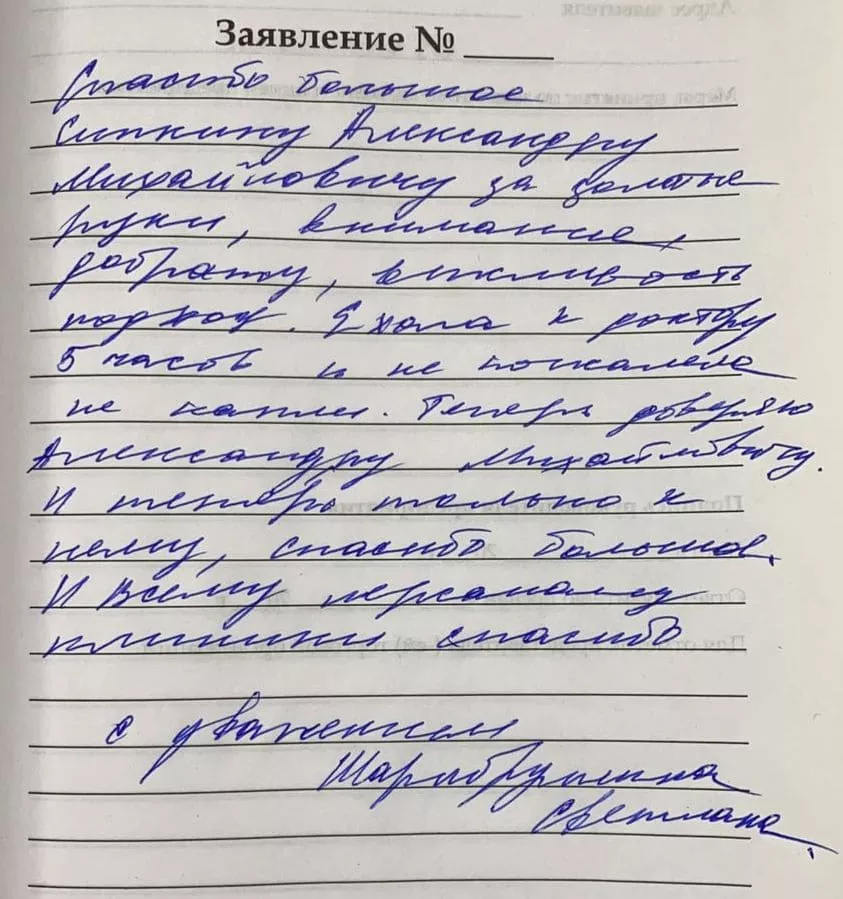 Заявление № ____
Спасибо большое
Сипкину Александру
Михайловичу за золатые
руки, внимание,
доброту, вежливость
подход. Ехала к доктору
5 часов и не пожалела
не капли. Теперь доверяю
Александру Михайловичу.
И теперь только к
нему, спасибо большое.
И всему персоналу
клиники спасибо
с уважением
Светлана